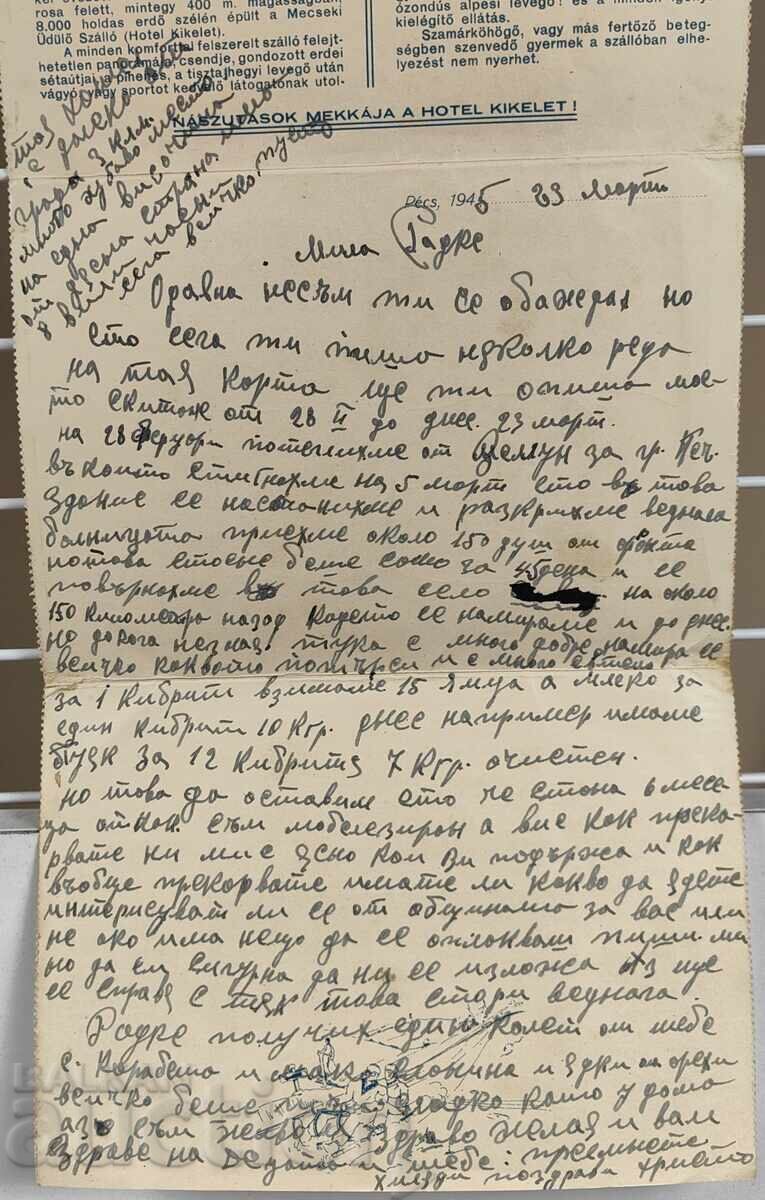 rosa felett, mintegy 400 m. magasságban,
8.000 holdas erdő szélén épült a Mecseki
Üdülő Szálló (Hotel Kikelet).
A minden komforttal felszerelt szálló felejt-
hetetlen panorámája, csendje, gondozott erdei
sétaútjai a pihenés, a tisztahegyi levegő után
vágyó, vagy sportot kedvelő látogatónak utol-
ózondús alpesi levegő! és a minden
kielégítő ellátás.
Szamárköhögő, vagy más fertőző beteg-
ségben szenvedő gyermek a szállóban elhe-
lyezést nem nyerhet.
NÁSZUTASOK MEKKÁJA A HOTEL KIKELET!
тая
е далеко
града 3 клм.
много хубаво место
на една височина
от дясна страна
в
сега всичко пусто
Pécs, 1945 23 Март
Мила Радке
Одавна несъм ти се обаждал но
ето сега ти пиша неколко реда
на тая карта ще ти опиша мое-
то скитане от 28 II до днес. 23 март.
на 28 Феруари потеглихме от Земун за гр. Печ.
въ които стигнахме на 5 март ето в това
здание се настанихме и разкрихме веднага
болницата приехме около 150 души от фронта
но това стоене беше само за 45 дена и се
повърнахме в това село на около
150 километра назад където се намираме и до днес.
но до кога незная. тука е много добре намира се
всичко каквото потърси и е много евтено
за 1 кибрит взимаме 15 яйца а млеко за
един кибрит 10 кгр. днес например имаме
пуяк за 12 кибрита 7 кгр. очистен.
но това да оставим ето че стана 6 месе-
ца откак съм мобелезиран а вие как прека-
рвате ни ми е ясно кой ви подържа и как
въобще прекарвате имате ли какво да ядете
интерисуват ли се от общината за вас или
не ако има нещо да се оплакваш пиши ми
но да си сигурна да ни се излажа аз ще
се справя с тях това стори веднага.
Радке получих един колет от тебе
с и сланина и ядки от орехи
всичко беше сладко като у дома
аз съм жив и здраво желая и вам
здраве на децата и тебе: приемнете
поздрави Христо